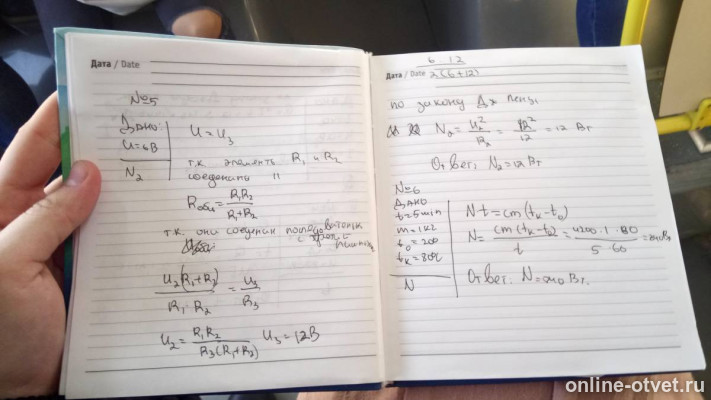 Дата / Date
№5
Дано:
U=6В
N₂
U = U₃
т.к. элементы R₁ и R₂
соединены ||
Rобщ = R₁R₂ / R₁+R₂
т.к. они соединены
U₂(R₁+R₂) / R₁·R₂ = U₃ / R₃
U₂ = R₁R₂ / R₃(R₁+R₂) U₃ = 12В
6 12
2(6+12)
Дата / Date
по закону Дж Ленца
N₂ = U₂² / R₂ = 12² / 12 = 12 Вт
Ответ: N₂=12 Вт
№6
Дано
t=5min
m=1кг
t₀=200
tк=80%
N
N·t = cm(tк-t₀)
N = cm(tк-t₀) / t = 4200·1·80 / 5·60 = 840Вт
Ответ: N=840 Вт.
online-otvet.ru